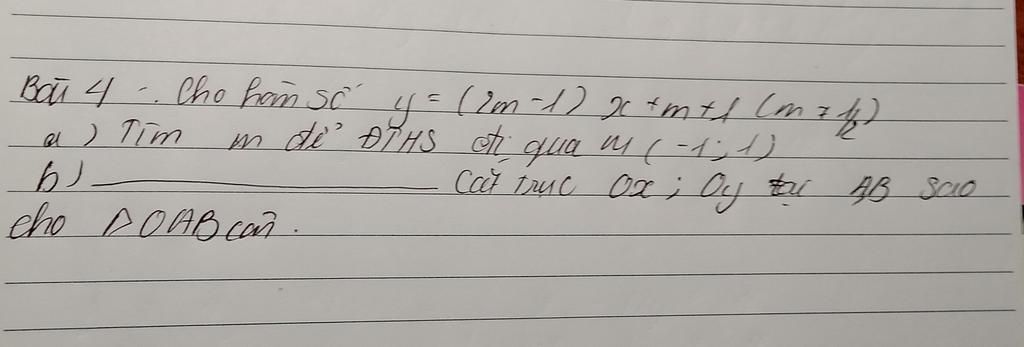 Bài 4 -. Cho hàm số y = (2m -1) x + m + 1 (m ≠ 1/2)
a) Tìm m để ĐTHS đi qua M (-1; 1)
b) ________ Cắt trục Ox; Oy tại AB sao
cho △OAB cân.